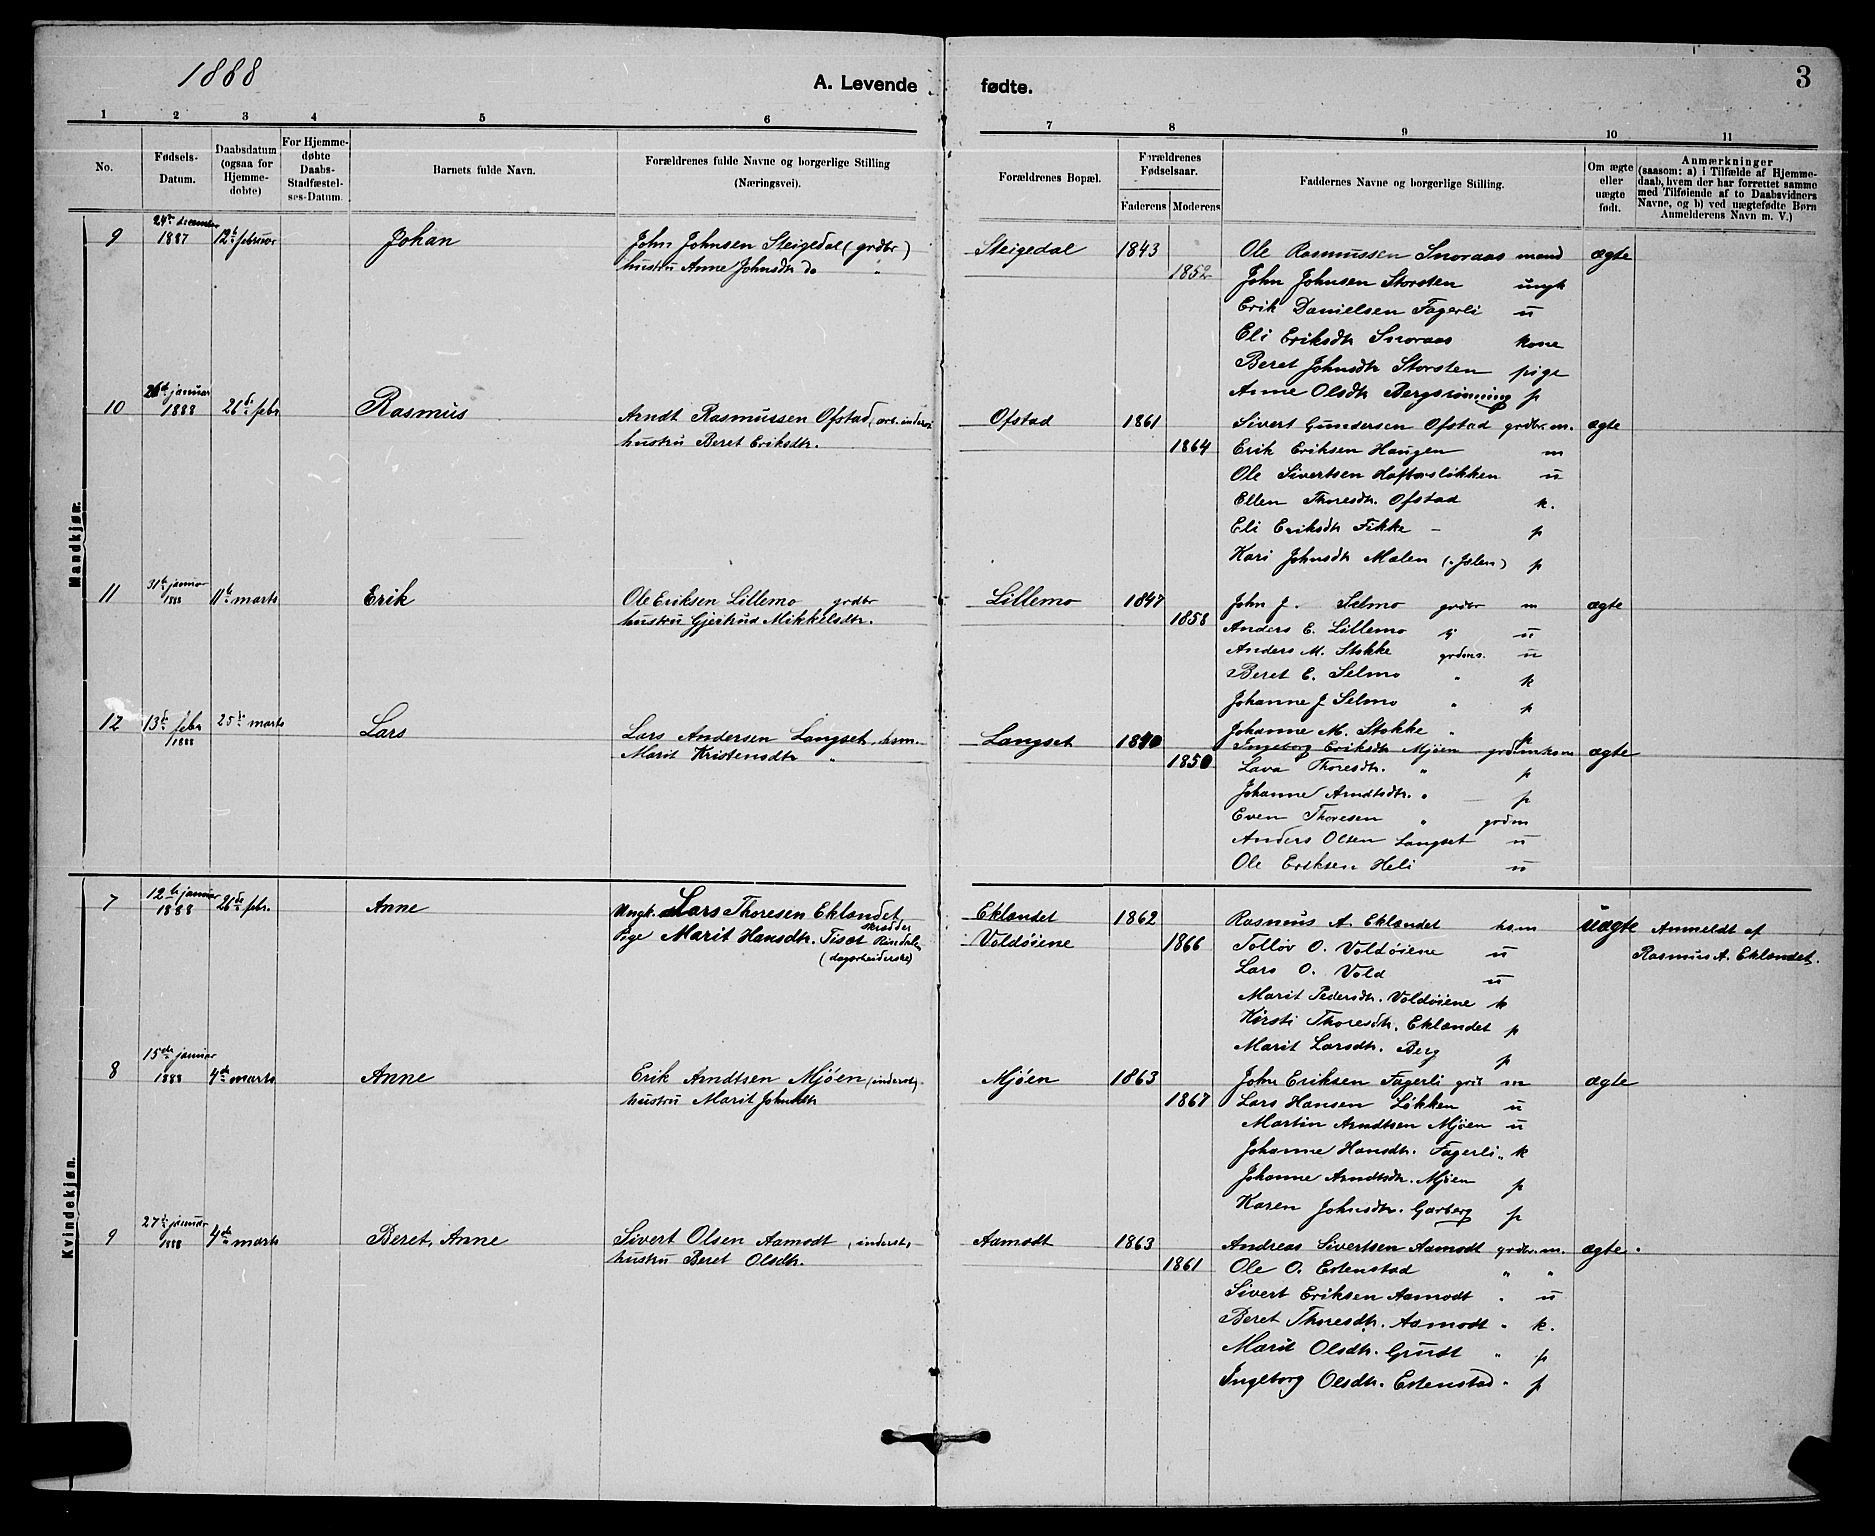 1888
A. Levende fødte.
3
1 2 3 4 5 6 7 8 9 10 11
No.
Fødsels-Datum.
Daabsdatum (ogsaa for Hjemme-døbte)
For Hjemme-døbte Daabs-Stadfæstel-ses-Datum.
Barnets fulde Navn.
Forældrenes fulde Navne og borgerlige Stilling (Næringsvei).
Forældrenes Bopæl.
Forældrenes Fødselsaar.
Faderens Moderens
Faddernes Navne og borgerlige Stilling.
Om ægte eller uægte født.
Anmærkninger (saasom: a) i Tilfælde af Hjemme-daab, hvem der har forrettet samme med Tilføiende af to Daabsvidners Navne, og b) ved uægtefødte Børn Anmelderens Navn m. V.)
Mandkjøn.
9 24de december 1887 12te februar Johan John Johnsen Steigedal (grdbr) Steigedal 1843 Ole Rasmussen Snoraas mand ægte
hustru Anne Johnsdtr do " 1852 John Johnsen Storsten ungk
Erik Danielsen Fagerli u
Eli Eriksdtr Snoraas kone
Beret Johnsdtr Storsten pige
Anne Olsdtr Bergsrönning p
10 26de januar 1888 26de febr Rasmus Arndt Rasmussen Ofstad (arb. inderst Ofstad 1861 Sivert Gundersen Ofstad grdbr. m. ægte
hustru Beret Eriksdtr. 1864 Erik Eriksen Haugen m
Ole Sivertsen Hoftorsløkken u
Ellen Thoresdtr. Ofstad k.
Eli Eriksdtr Fikke - p
Kari Johnsdtr Mælen (Jølen) p
11 31te januar 1888 11te marts Erik Ole Eriksen Lillemo grdbr Lillemo 1847 John J. Selmo grdbr m ægte
hustru Gjertrud Mikkelsdtr. 1858 Anders E. Lillemo " u
Anders M. Stokke grdms. u
Beret E. Selmo " k
Johanne J Selmo " p
Johanne M. Stokke " p
12 13de febr 1888 25de marts Lars Lars Andersen Langset, hsm. Langset 1840 Ingeborg Eriksdtr Mjöen grdmkone ægte
Marit Kristensdtr " 1850 Lava Thoresdtr. " p
Johanne Arndtsdtr. " p
Even Thoresen " grdm
Anders Olsen Langset u
Ole Eriksen Heli u
Kvindekjøn.
7 12te januar 1888 26de febr. Anne Ungk. Lars Thoresen Eklandet, skrædder Eklandet 1862 Rasmus A. Eklandet hsm uægte Anmeldt af
Pige Marit Hansdtr. Tiset Rindalen Voldöiene 1866 Tollöv O. Voldöiene u Rasmus A. Eklandet.
(dagarbeiderske) Lars O. Vold u
Marit Pedersdtr. Voldöiene k
Kirsti Thoresdtr. Eklandet p
Marit Larsdtr. Berg p
8 15de januar 1888 4de marts Anne Erik Arndtsen Mjöen (inderst) Mjöen 1863 John Eriksen Fagerli grdr m ægte
hustru Marit Johnsdtr 1867 Lars Hansen Lökken u
Martin Arndtsen Mjöen u
Johanne Hansdtr. Fagerli " k
Johanne Arndtsdtr. Mjöen p
Karen Johnsdtr. Garberg p
9 27de januar 1888 4de marts Beret, Anne Sivert Olsen Aamodt, inderst, Aamodt 1863 Andreas Sivertsen Aamodt grdbr. m. ægte.
hustru Beret Olsdtr. 1861 Ole O. Estenstad " "
Sivert Eriksen Aamodt " u
Beret Thoresdtr. Aamodt " k.
Marit Olsdtr. Grudt " p
Ingeborg Olsdtr. Estenstad " p